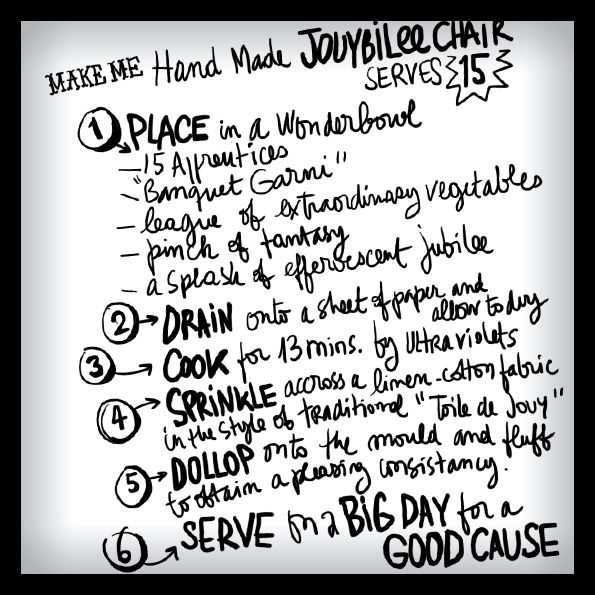 MAKE ME Hand Made JOUYBILee CHAIR
SERVES 15
1 PLACE in a Wonderbowl
– 15 Apprentices
– "Banquet Garni"
– league of extraordinary vegetables
– pinch of fantasy
– a splash of effervescent jubilee
2 DRAIN onto a sheet of paper and
allow to dry
3 COOK for 13 mins. by Ultraviolets
4 SPRiNKLE accross a linen-cotton fabric
in the style of traditional "Toile de Jouy"
5 DOLLOP onto the mould and fluff
to obtain a pleasing consistancy.
6 SERVE on a BiG DAY for a
GOOD CAUSE